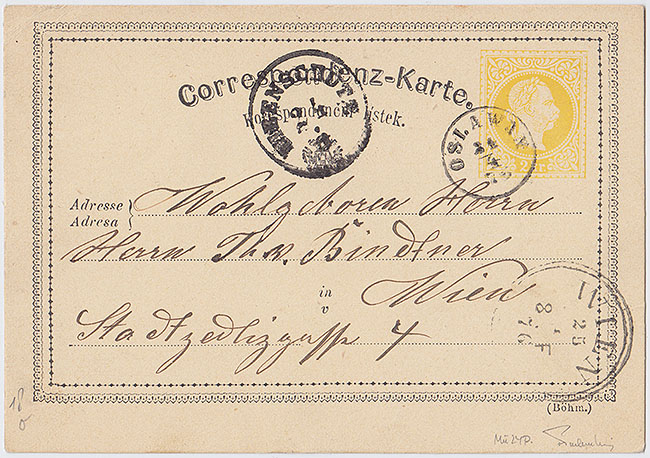 Correspondenz-Karte.
Korrespondenční lístek.
EIBENSCHÜTZ
OSLAWAN
24
2 Kr.
Adresse
Adresa
Wohlgeboren Herrn
Herrn Th. v. Bindtner
in
v
Wien
Stadt Zedlizgasse 4
WIEN
25
8 F
76
(Böhm.)
18